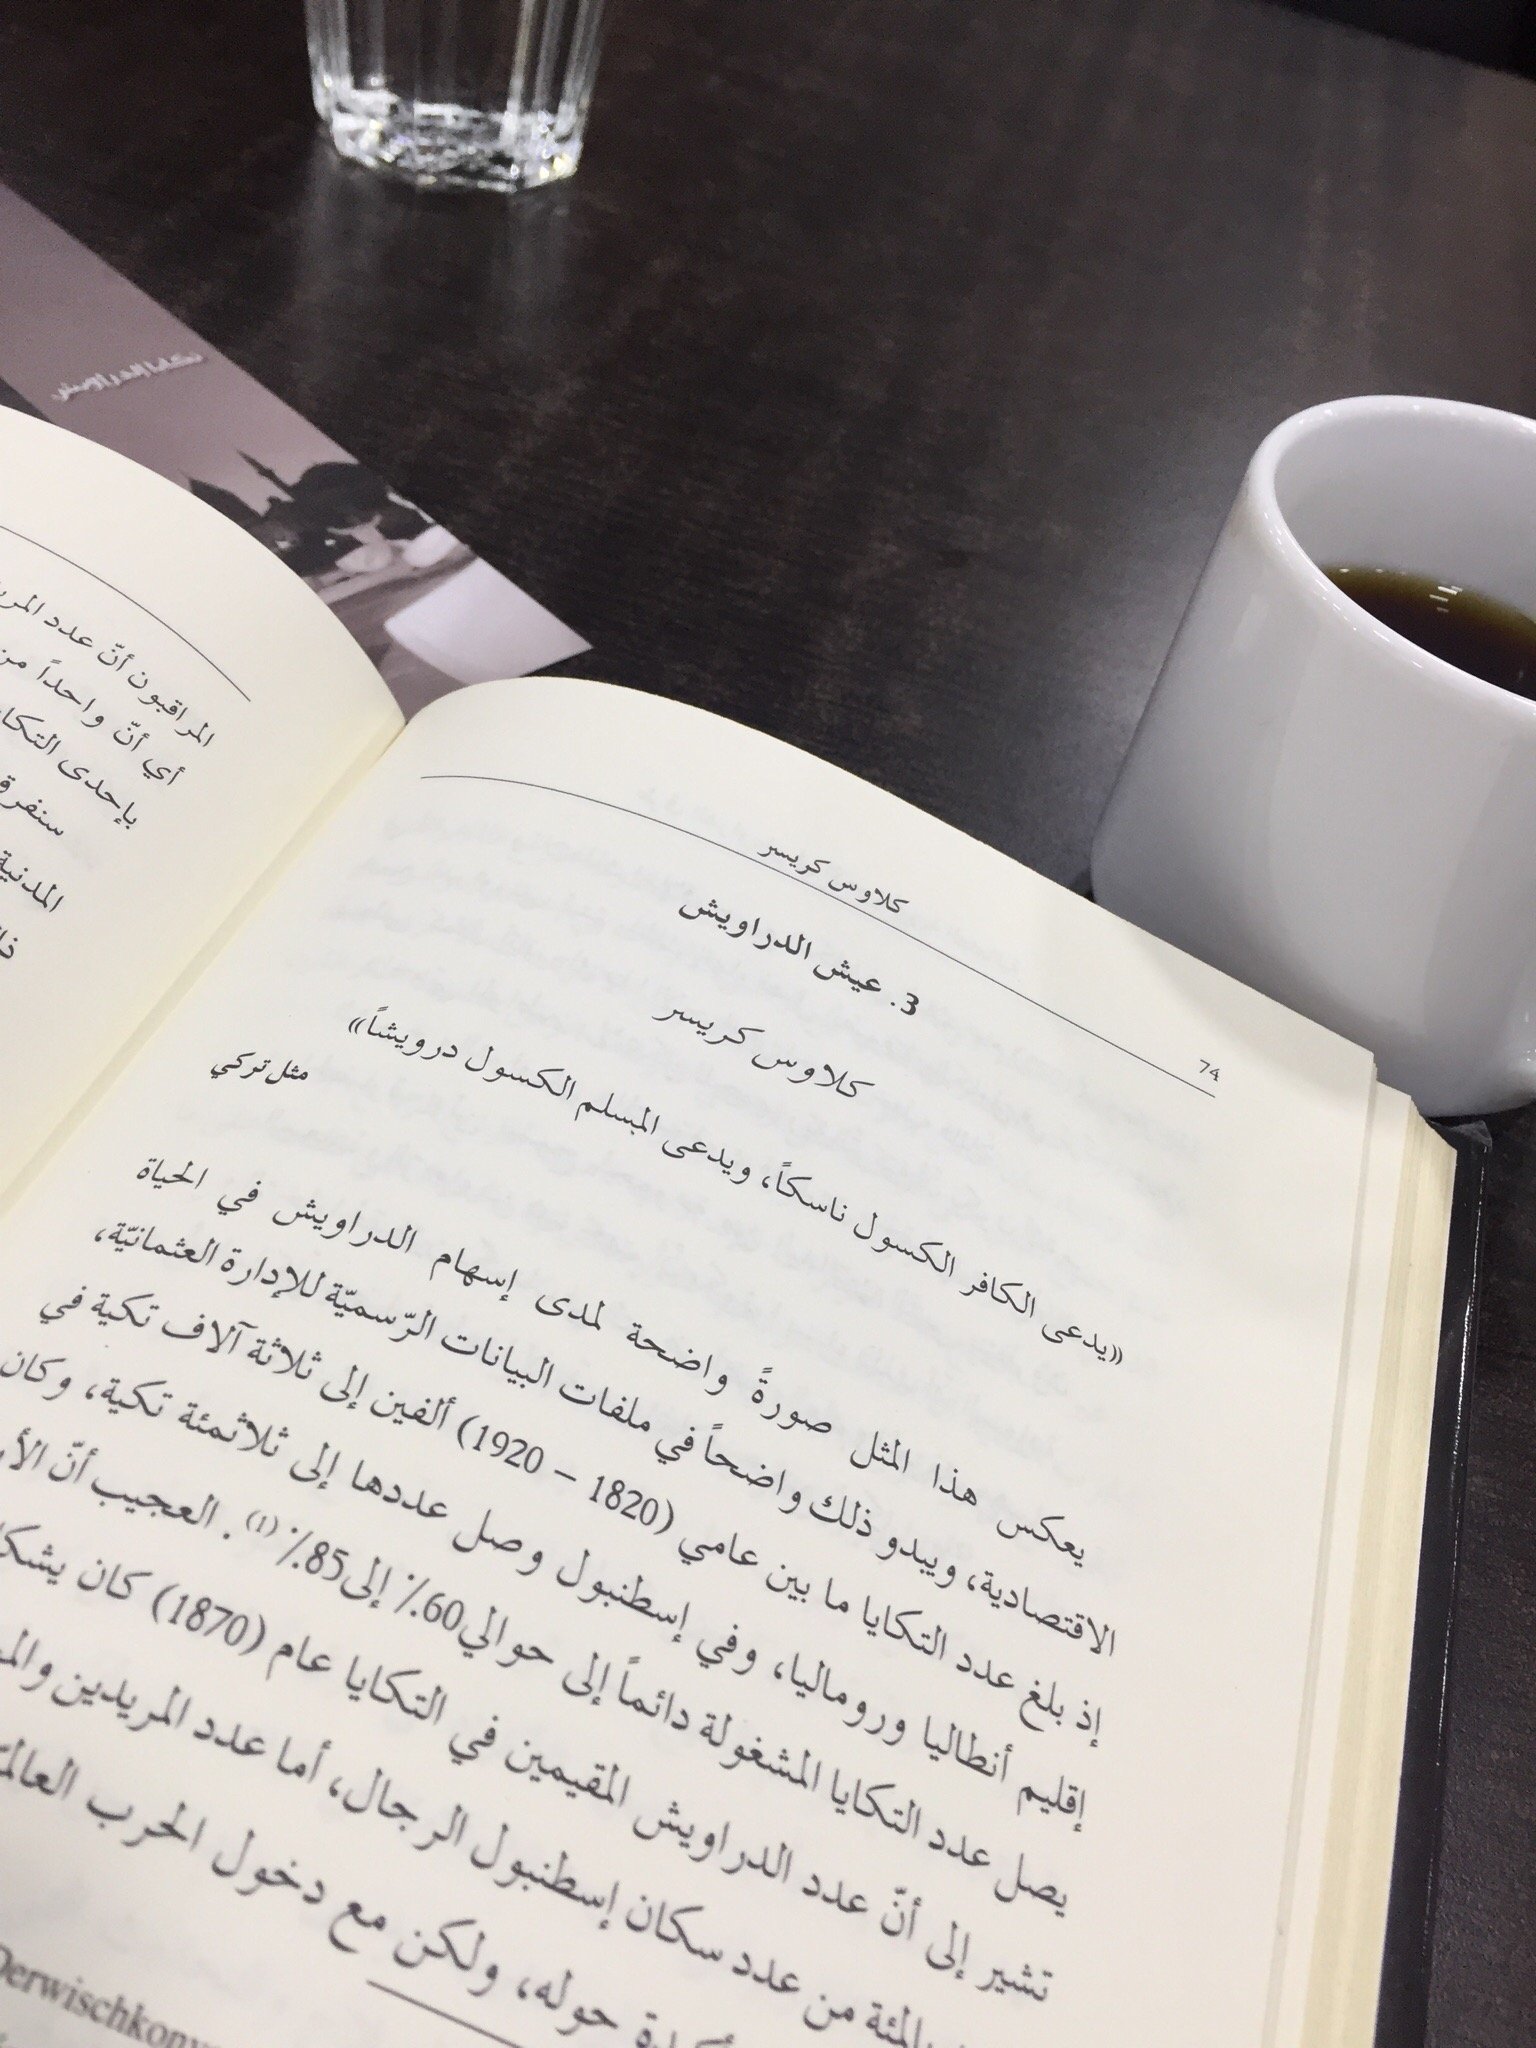 تكايا الدراويش
المراقبون أنّ عدد
أي أنّ واحداً من
بإحدى
المدنية
كلاوس كريسر
74
3. عيش الدراويش
كلاوس كريسر
«يدعى الكافر الكسول ناسكاً، ويدعى المسلم الكسول درويشاً»
مثل تركي
يعكس هذا المثل صورةً واضحة لمدى إسهام الدراويش في الحياة
الاقتصادية، ويبدو ذلك واضحاً في ملفات البيانات الرّسميّة للإدارة العثمانيّة،
إذ بلغ عدد التكايا ما بين عامي (1820 – 1920) ألفين إلى ثلاثة آلاف تكية في
إقليم أنطاليا وروماليا، وفي إسطنبول وصل عددها إلى ثلاثمئة تكية، وكان
يصل عدد التكايا المشغولة دائماً إلى حوالي60٪ إلى85٪(1). العجيب أنّ
تشير إلى أنّ عدد الدراويش المقيمين في التكايا عام (1870) كان
بالمئة من عدد سكان إسطنبول الرجال، أما عدد المريدين
حوله، ولكن مع دخول الحرب